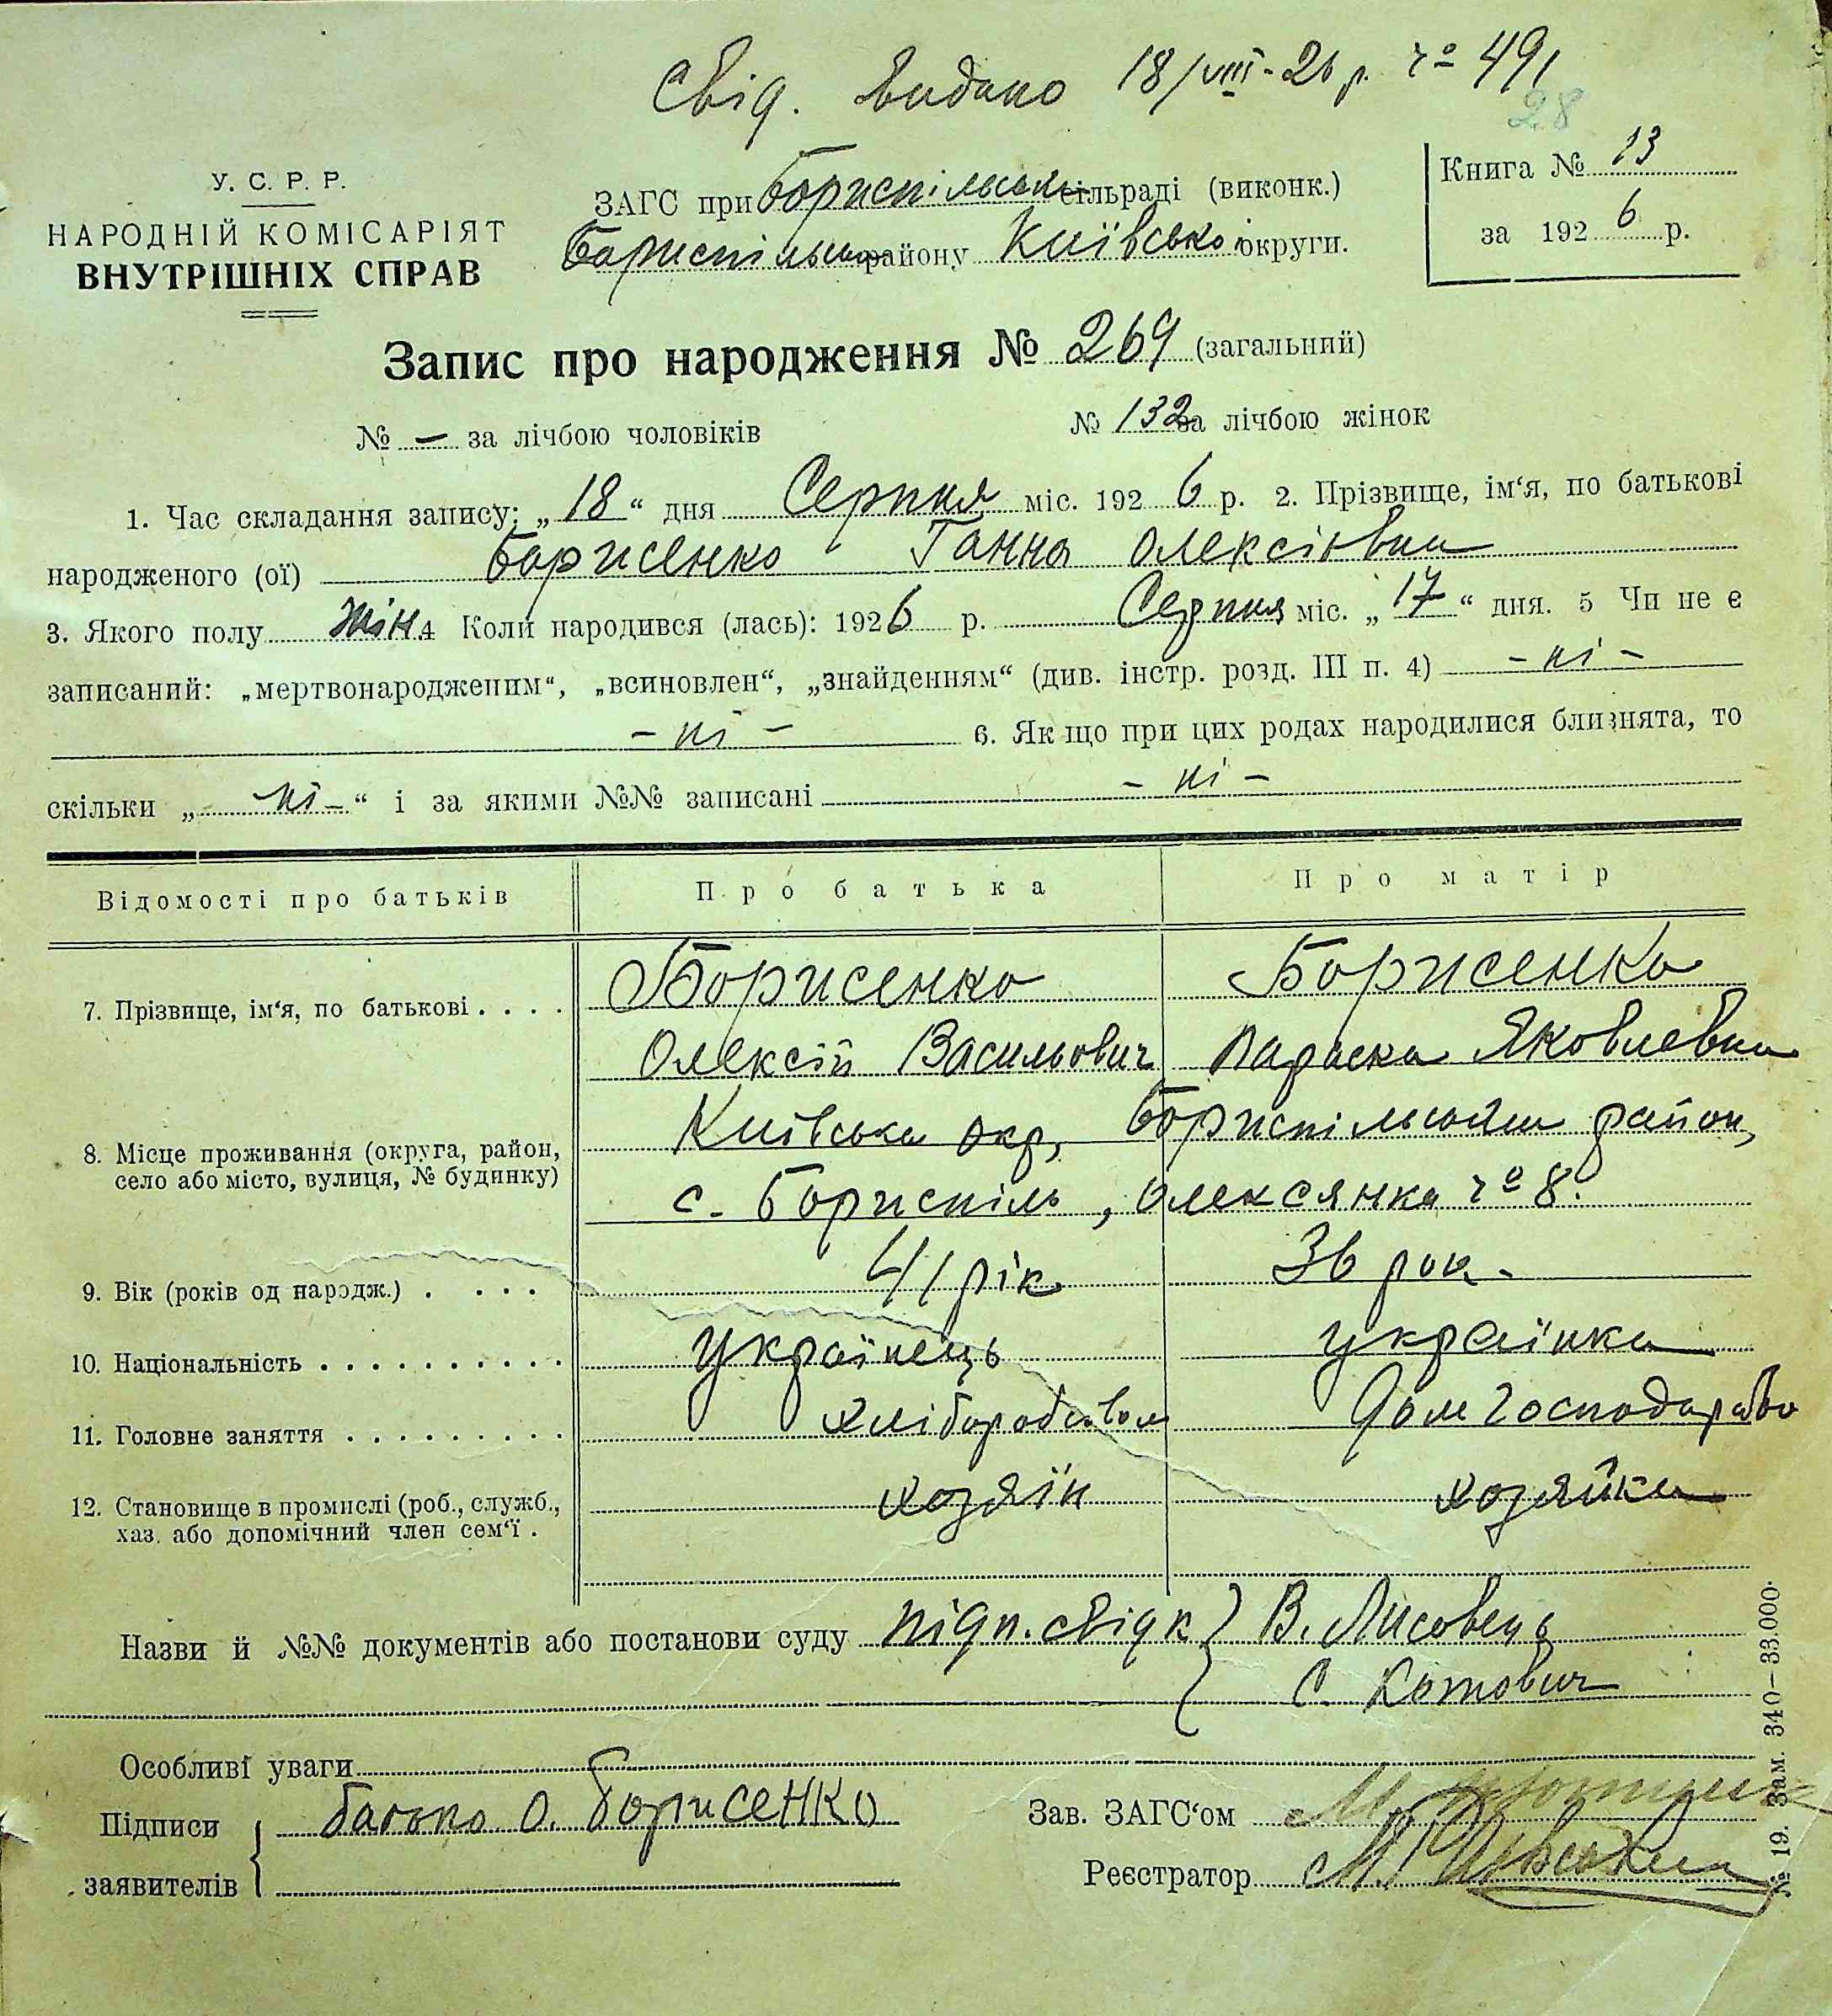 Свід. видано 18/VIII-26 р. ч° 491
28
У. С. Р. Р.
НАРОДНІЙ КОМІСАРІЯТ
ВНУТРІШНІХ СПРАВ
ЗАГС при Бориспільськ сільраді (виконк.)
Бориспільськ району Київсько округи.
Книга № 13
за 1926 р.
Запис про народження № 269 (загальний)
№ — за лічбою чоловіків № 132 за лічбою жінок
1. Час складання запису: „18“ дня Серпня міс. 1926 р. 2. Прізвище, ім‘я, по батькові
народженого (ої) Борисенко Ганна Олексіївна
3. Якого полу жін. 4 Коли народився (лась): 1926 р. Серпня міс. „17“ дня. 5 Чи не є
записаний: „мертвонародженим“, „всиновлен“, „знайденням“ (див. інстр. розд. III п. 4) - ні -
- ні - 6. Якщо при цих родах народилися близнята, то
скільки „ - ні - “ і за якими №№ записані - ні -
Відомості про батьків Про батька Про матір
7. Прізвище, ім‘я, по батькові . . . . Борисенко Борисенко
Олексій Васильович Параска Яковлевна
8. Місце проживання (округа, район, Київська окр, Бориспільський район,
село або місто, вулиця, № будинку) с. Бориспіль, Олексянка ч° 8.
9. Вік (років од народж.) . . . . 41 рік 36 рок.
10. Національність . . . . . . . . . . українець українка
11. Головне заняття . . . . . . . . . хліборобством Дом господарство
12. Становище в промислі (роб., служб., хозяїн хозяйка
хаз. або допомічний член сем‘ї .
Назви й №№ документів або постанови суду підп. свідк } В. Лисовець
С. Котович
Особливі уваги
Підписи батько О. Борисенко Зав. ЗАГС‘ом
заявителів Реєстратор
№ 19. Зам. 340–33.000.